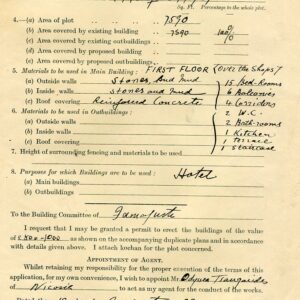 (sq. ft. Percentage to the whole plot.
4.—(a) Area of plot 7590
(b) Area covered by existing building 7590 100%
(c) Area covered by existing outbuildings
(d) Area covered by proposed building
(e) Area covered by proposed outbuildings
5. Materials to be used in Main Building: FIRST FLOOR (Over the Shops)
(a) Outside walls Stones, and mud 15 Bed-Rooms
(b) Inside walls 6 Balconies
(c) Roof covering Reinforced Concrete 4 Corridors
6. Materials to be used in Outbuildings: 2 W.C.
(a) Outside walls 2 Bath-rooms
(b) Inside walls Stones and mud 1 Kitchen
(c) Roof covering 1 Terrace
7. Height of surrounding fencing and materials to be used 1 Staircase
8. Purpose for which Buildings are to be used: Hotel
(a) Main buildings
(b) Outbuildings
To the Building Committee of Famagusta
I request that I may be granted a permit to erect the buildings of the value
of as shown on the accompanying duplicate plans and in accordance
with details given above. I attach kochan for the plot concerned.
APPOINTMENT OF AGENT.
Whilst retaining my responsibility for the proper execution of the terms of this
application, for my own convenience, I wish to appoint Mr.
of Nicosia to act as my agent for the conduct of the works.